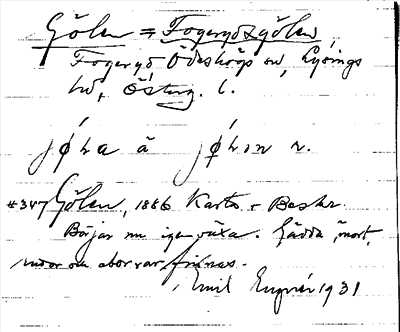 Gölen = Fogerydsgölen,
Fogeryd Ödeshögs sn, Lysings
hd, Österg. l.
jø̂la ä jø̂lən n.
#347 Gölen, 1886 Karta o Beskr.
Börjar nu igenväxa. Gädda, mört,
rudor och aborrar finnas.
Emil 1931